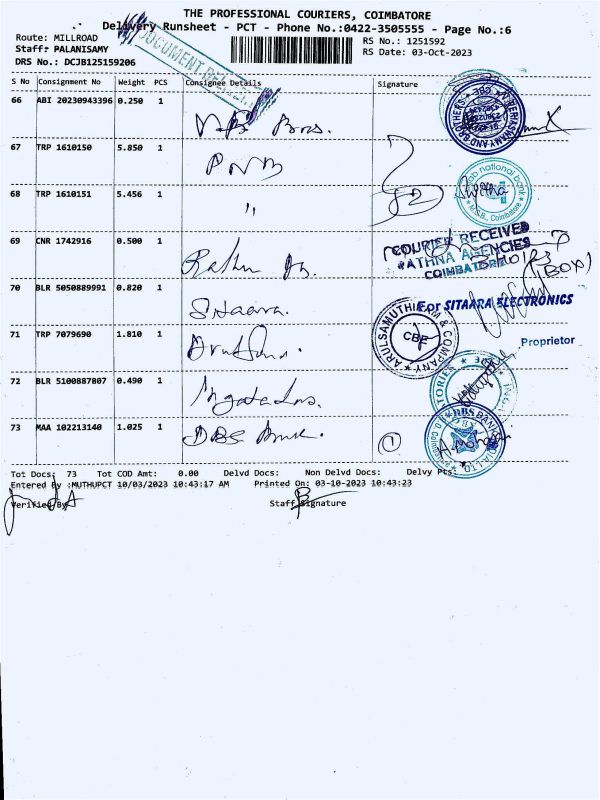 THE PROFESSIONAL COURIERS, COIMBATORE
Delivery Runsheet - PCT - Phone No.:0422-3505555 - Page No.:6
Route: MILLROAD
RS No.: 1251592
Staff: PALANISAMY
RS Date: 03-Oct-2023
DRS No.: DCJB125159206
S No Consignment No Weight PCS Consignee Details Signature
66 ABI 20230943396 0.250 1
V.B Bros.
67 TRP 1610150 5.850 1
PNB
68 TRP 1610151 5.456 1
"
punjab national bank
M.S.B., Coimbatore
69 CNR 1742916 0.500 1
COURIER RECEIVED
RATHNA AGENCIES
COIMBATORE
(BOX)
70 BLR 5050889991 0.820 1
Sitaara.
For SITAARA ELECTRONICS
Proprietor
71 TRP 7079690 1.810 1
ARULSAMUTHIRAM & COMPANY
CBE
72 BLR 5100887807 0.490 1
73 MAA 102213140 1.025 1
DBS Bank.
1
DBS BANK
Tot Docs: 73 Tot COD Amt: 0.00 Delvd Docs: Non Delvd Docs: Delvy Pts:
Entered By :MUTHUPCT 10/03/2023 10:43:17 AM Printed On: 03-10-2023 10:43:23
Verified By
Staff Signature